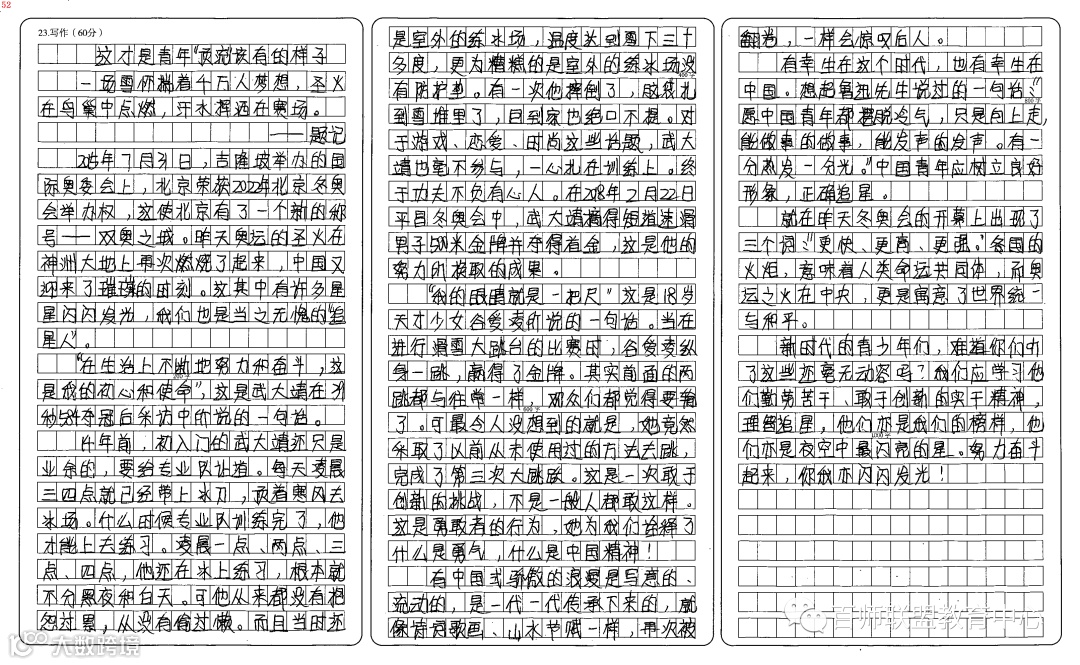 52
23.写作（60分）
这才是青年"顶流"该有的样子
一场雪你揣着千万人梦想，圣火
在鸟巢中点燃，汗水挥洒在赛场。
——题记
2015年7月31日，吉隆坡举办的国
际奥委会上，北京荣获2022年北京冬奥
会举办权，这使北京有了一个新的称
号——双奥之城。昨天奥运的圣火在
神州大地上再次燃烧了起来，中国又
迎来了璀璨的时刻。这其中有许多星
星闪闪发光，我们也是当之无愧的"追
星人"。
"在生活上不断地努力和奋斗，这
200字
是我的初心和使命"，这是武大靖在
夺冠后采访中所说的一句话。
年前，初入门的武大靖还只是
业余的，要给专业队让道。每天凌晨
三四点就已经带上冰刀，顶着寒风去
冰场。什么时候专业队训练完了，他
才能上去练习。凌晨一点、两点、三
点、四点，他还在冰上练习，根本就
不分黑夜和白天。可他从来都没有抱
怨过累，从没有偷过懒。而且当时还
是室外的练冰场，温度达到零下三十
多度，更为糟糕的是室外的练冰场没
400字
有防护垫。有一次他摔倒了，
到雪堆里了，回到家也绝口不提。对
于游戏、恋爱、时尚这些话题，武大
靖也毫不参与，一心扎在训练上。终
于功夫不负有心人。在2018年2月22日
平昌冬奥会中，武大靖摘得短道速滑
男子500米金牌并夺得首金，这是他的
努力所换取的成果。
"我的眼睛就是一把尺"这是18岁
天才少女谷爱凌所说的一句话。当在
进行滑雪大跳台的比赛时，谷爱凌纵
身一跳，赢得了金牌。其实前面的两
跳都与往常一样，观众们都觉得要输
600字
了。可最令人没想到的就是，她竟然
采取了以前从未使用过的方法去跳，
完成了第三次大跳跃。这是一次敢于
创新的挑战，不是一般人都敢这样。
这是勇敢者的行为，她为我们诠释了
什么是勇气，什么是中国精神！
有中国或骄傲的浪漫是写意的、
流动的，是一代一代传承下来的，就
像诗词歌画、山水节赋一样，再次被
翻当，一样会惊叹后人。
有幸生在这个时代，也有幸生在
中国。想起鲁迅先生说过的一句话："
800字
愿中国青年都摆脱冷气，只是向上走，
能做事的做事，能发声的发声。有一
分热发一分光。"中国青年应树立良好
形象，正确追星。
就在昨天冬奥会的开幕上出现了
三个词："更快、更高、更强。"各国的
火炬，意味着人类命运共同体，而奥
运之火在中央，更是寓意了世界统一
与和平。
新时代的青少年们，难道你们听
了这些还毫无动容吗？我们应学习他
们勤劳苦干、敢于创新的实干精神，
理智追星，他们亦是我们的榜样，他
1000字
们亦是夜空中最闪亮的星。努力奋斗
起来，你我亦闪闪发光！
百师联盟教育中心
大数跨境